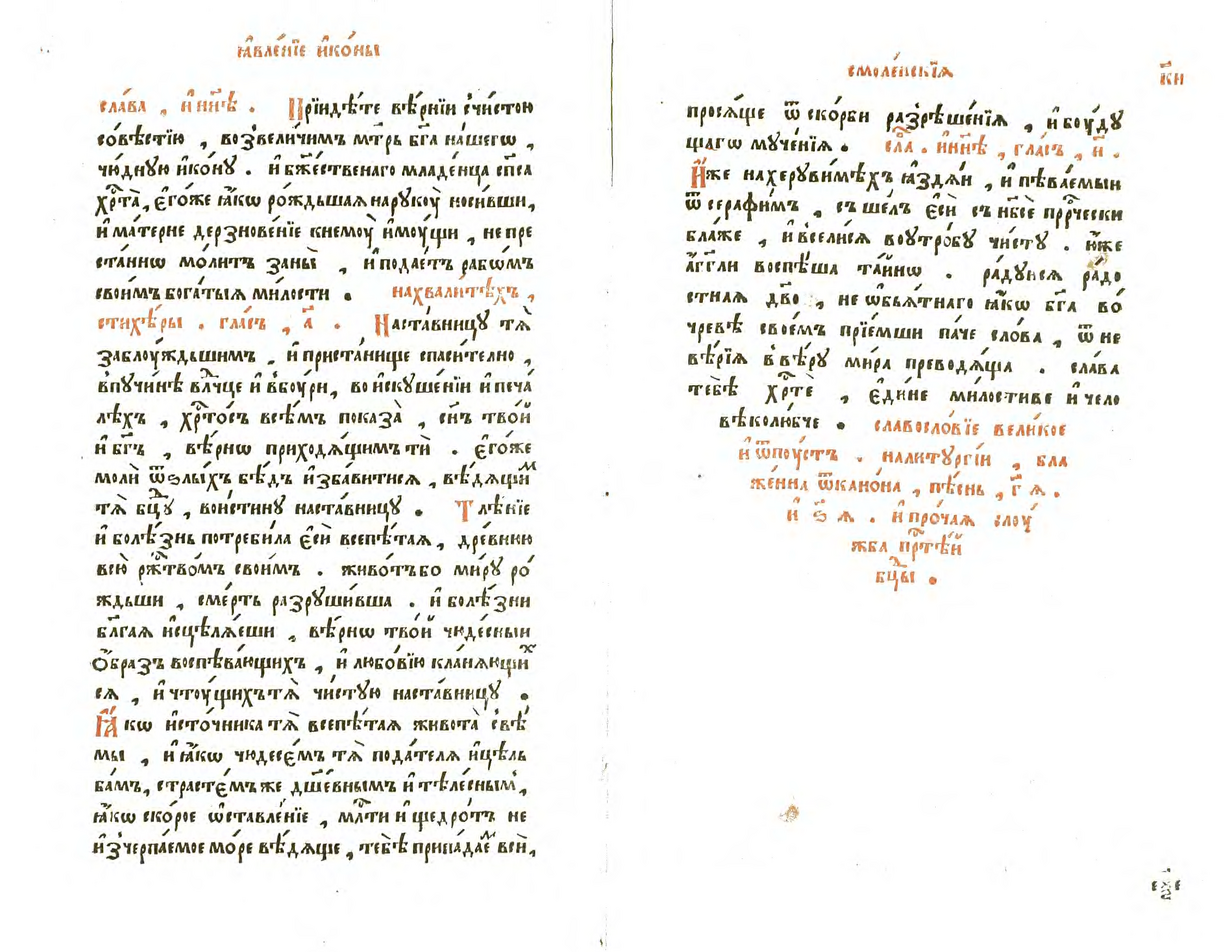 ꙗ҆вле́нїе и҆ко́ны
сла́ва , и҆ нн҃ѣ . Прїидѣ́те вѣ́рнїи с̾чи́стою
со́вѣстїю , возвели́чимъ мт҃рь бг҃а на́шегѡ ,
чю́дную и҆ко́ну . и҆ бж҃е́ственаго младе́нца сп҃са
хрⷭ҇та̀, є҆го́же ꙗ҆́кѡ ро́ждьшаꙗ нарукоу̀ носи́вши,
и҆ ма́терне дерзнове́нїе кнемоу̀ и҆мо́ущи , непре
ста́ннѡ мо́литъ заны̀ , и҆ подае́тъ рабѡ́мъ
свои́мъ бога́тыꙗ ми́лости . нахвали́тѣхъ ,
стихѣ́ры . гла́съ , а҃ . Наста́вницꙋ тѧ̀
заблоу́ждьшимъ , и҆ приста́нище спаси́телно ,
впучи́нѣ влⷣчце и҆ вбоу́ри, во и҆скуше́нїи и҆ печа́
лѣхъ , хрⷭ҇то́съ всѣ́мъ показа̀ , сн҃ъ тво́й
и҆ бг҃ъ , вѣ́рнѡ приходѧ́щимъ тѝ . є҆го́же
моли̂ ѿѕлы́хъ бѣ́дъ и҆зба́витисѧ , вѣ́дѧщиⷨ
тѧ̀ бцⷣꙋ , вои́стину наста́вницꙋ . Тлѣ́нїе
и҆ болѣ́знь потреби́ла є҆сѝ всепѣ́таꙗ, дре́внюю
всю̀ рж҃тво́мъ свои́мъ . живо́тъбо ми́рꙋ ро́
ждьши , сме́рть разрꙋши́вша . и҆ болѣ́зни
бл҃гаꙗ и҆сцѣлѧ́еши , вѣ́рнѡ тво́й чюде́сныи
ѻ҆́бразъ воспѣва́ющихъ , и҆ любо́вїю кла́нѧющиⷯ
сѧ , и҆ чтоу́щихътѧ̀ чи́стую наста́вницꙋ .
Ꙗ҆́кѡ и҆сто́чника тѧ̀ всепѣ́таꙗ живота̀ свѣ́
мы , и҆ ꙗ҆́кѡ чюдесє́мъ тѧ̀ пода́телѧ и҆цѣль
ба́мъ, страстє́мъже дш҃е́внымъ и҆ тѣле́сным̾,
ꙗ҆́кѡ ско́рое ѡ҆ставле́нїе , млⷭ҇ти и҆ щедро́тъ не
и҆зчерпа́емое мо́ре вѣ́дѧще , тебѣ̀ припа́даеⷨ всѝ,
смоле́нскїѧ
к҃и
просѧ́ще ѿ ско́рби разрѣше́нїѧ , и҆ боу́дꙋ
щагѡ муче́нїѧ . сла́ . и҆ нн҃ѣ , гла́съ , и҃ .
И҆́же нахерꙋви́мѣхъ ꙗ҆здѧ́и , и҆ пѣва́емыи
ѿ серафи́мъ , съше́лъ є҆сѝ съ нб҃сѐ прⷪ҇рчески
бла́же , и҆ всели́сѧ воу҆тро́бꙋ чи́стꙋ . ю҆́же
а҆́гг҃ли воспѣ́ша та́йнѡ . ра́дꙋисѧ ра́до
стнаꙗ дв҃о , не ѡ҆бьѧ́тнаго ꙗ҆́кѡ бг҃а во́
чревѣ̀ свое́мъ прїе́мши па́че сло́ва , ѿ не
вѣ́рїѧ в̾вѣ́рꙋ ми́ра преводѧ́ща . сла́ва
тебѣ̀ хрⷭ҇тѐ , є҆ди́не ми́лостиве и҆ чело
вѣколю́бче . славосло́вїе вели́кое
и҆ ѿпоу́стъ . налитꙋ́ргїи , бла
же́нна ѿкано́на , пѣ́снь , г҃ ѧ .
и҆ ѕ҃ ѧ . и҆ про́чаꙗ слоу́
жба прⷭ҇тѣ́й
бцⷣы .